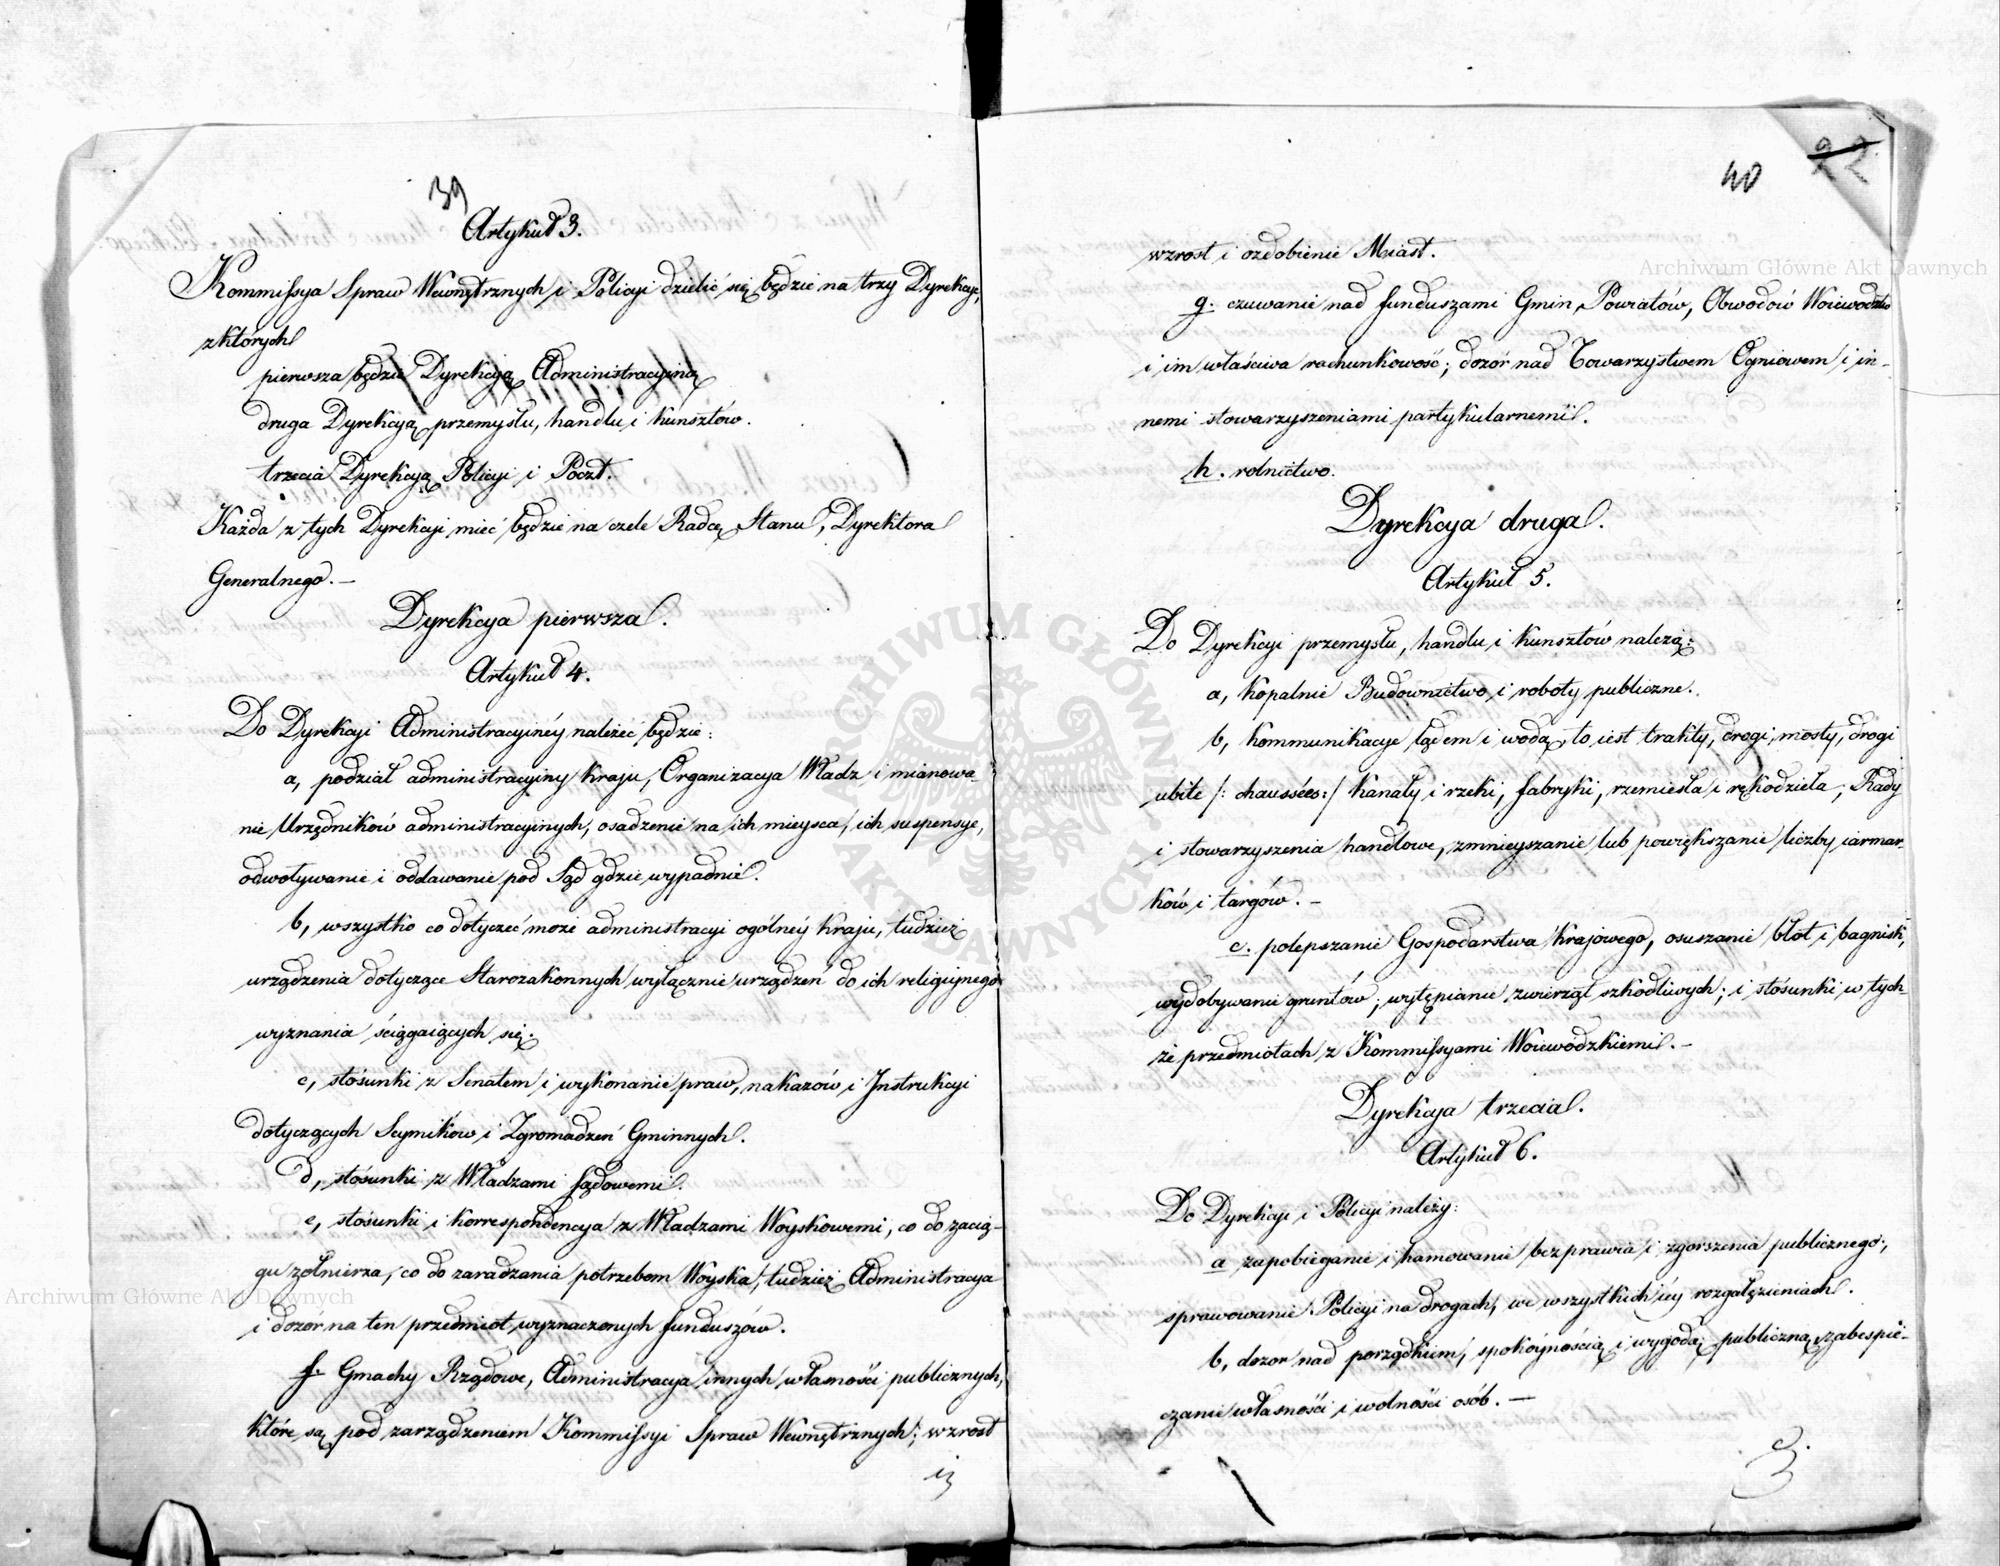 39
Artykuł 3.
Kommissya Spraw Wewnętrznych i Policyi dzielić się będzie na trzy Dyrekcye,
z których
pierwsza będzie Dyrekcyą Administracyiną
druga Dyrekcyą przemysłu, handlu i kunsztów.
trzecia Dyrekcyą Policyi i Poczt.
Każda z tych Dyrekcyi mieć będzie na czele Radcę Stanu, Dyrektora
Generalnego. —
Dyrekcya pierwsza.
Artykuł 4.
Do Dyrekcyi Administracyinéy należeć będzie:
a, podział administracyiny kraju, Organizacya Władz i mianowa-
nie Urzędników administracyinych, osadzenie na ich mieysca, ich suspensye,
odwoływanie i oddawanie pod Sąd gdzie wypadnie.
b, wszystko co dotyczeć może administracyi ogólnéy kraju, tudzież
urządzenia dotyczące Starozakonnych wyłącznie urządzeń do ich religiynego
wyznania ściągaiących się.
c, stósunki z Senatem i wykonanie praw, nakazów i Instrukcyi
dotyczących Seymików i Zgromadzeń Gminnych.
d, stósunki z Władzami Sądowemi.
e, stósunki i korrespondencya z Władzami Woyskowemi, co do zacią-
gu żołnierza, co do zaradzania potrzebom Woyska, tudzież Administracya
i dozór na ten przedmiot wyznaczonych funduszów.
f. Gmachy Rządowe, Administracya innych własności publicznych,
które są pod zarządzeniem Kommissyi Spraw Wewnętrznych; wzrost
40
22
wzrost i ozdobienie Miast.
g. czuwanie nad funduszami Gmin, Powiatów, Obwodów Woiewodztw
i im właściwa rachunkowość; dozór nad Towarzystwem Ogniowem i in-
nemi stowarzyszeniami partykularnemi.
h. rolnictwo.
Dyrekcya druga.
Artykuł 5.
Do Dyrekcyi przemysłu, handlu i kunsztów należą:
a, kopalnie Budownictwo i roboty publiczne.
b, kommunikacye lądem i wodą, to iest trakty, drogi, mosty, drogi
ubite /: chaussées:/ kanały i rzeki, fabryki, rzemiesła i rękodzieła; Rady
i stowarzyszenia handlowe, zmnieyszanie lub powiększanie liczby iarmar-
ków i targów. —
c. polepszanie Gospodarstwa krajowego, osuszanie błot i bagnisk,
wydobywanie gruntów, wytępianie zwierząt szkodliwych; i stósunki w tych
że przedmiotach z Kommissyami Woiewodzkiemi. —
Dyrekcya trzecia.
Artykuł 6.
Do Dyrekcyi i Policyi należy:
a zapobieganie i hamowanie bezprawia i zgorszenia publicznego;
sprawowanie Policyi na drogach, we wszystkich iéy rozgałęzieniach.
b, dozor nad porządkiem, spokóynością i wygodą publiczną, zabespie-
czanie własności i wolności osób. —
ARCHIWUM GŁÓWNE AKT DAWNYCH
Archiwum Główne Akt Dawnych
Archiwum Główne Akt Dawnych